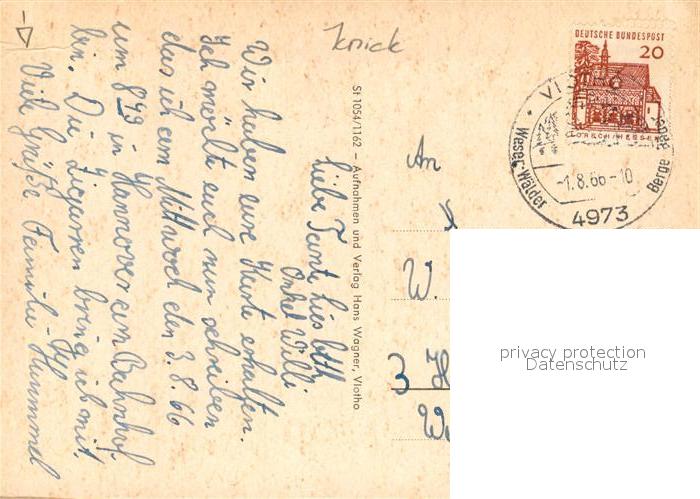 Knick
DEUTSCHE BUNDESPOST
20
LORSCH/HESSEN
VLOTHO
Weser · Wälder
Berge · Bäder
-1.8.66-10
4973
Liebe Tante Lisbeth
Onkel Willi
Wir haben eure Karte erhalten.
Ich möcht euch nun schreiben
das ich am Mittwoch den 3.8.66
um 8 49 in Hannover am Bahnhof
bin. Die Zigarren bring ich mit.
Viele Grüße Familie Hummel
St 1054/1162 – Aufnahmen und Verlag Hans Wagner, Vlotho
An
W.
3 H
W
privacy protection
Datenschutz